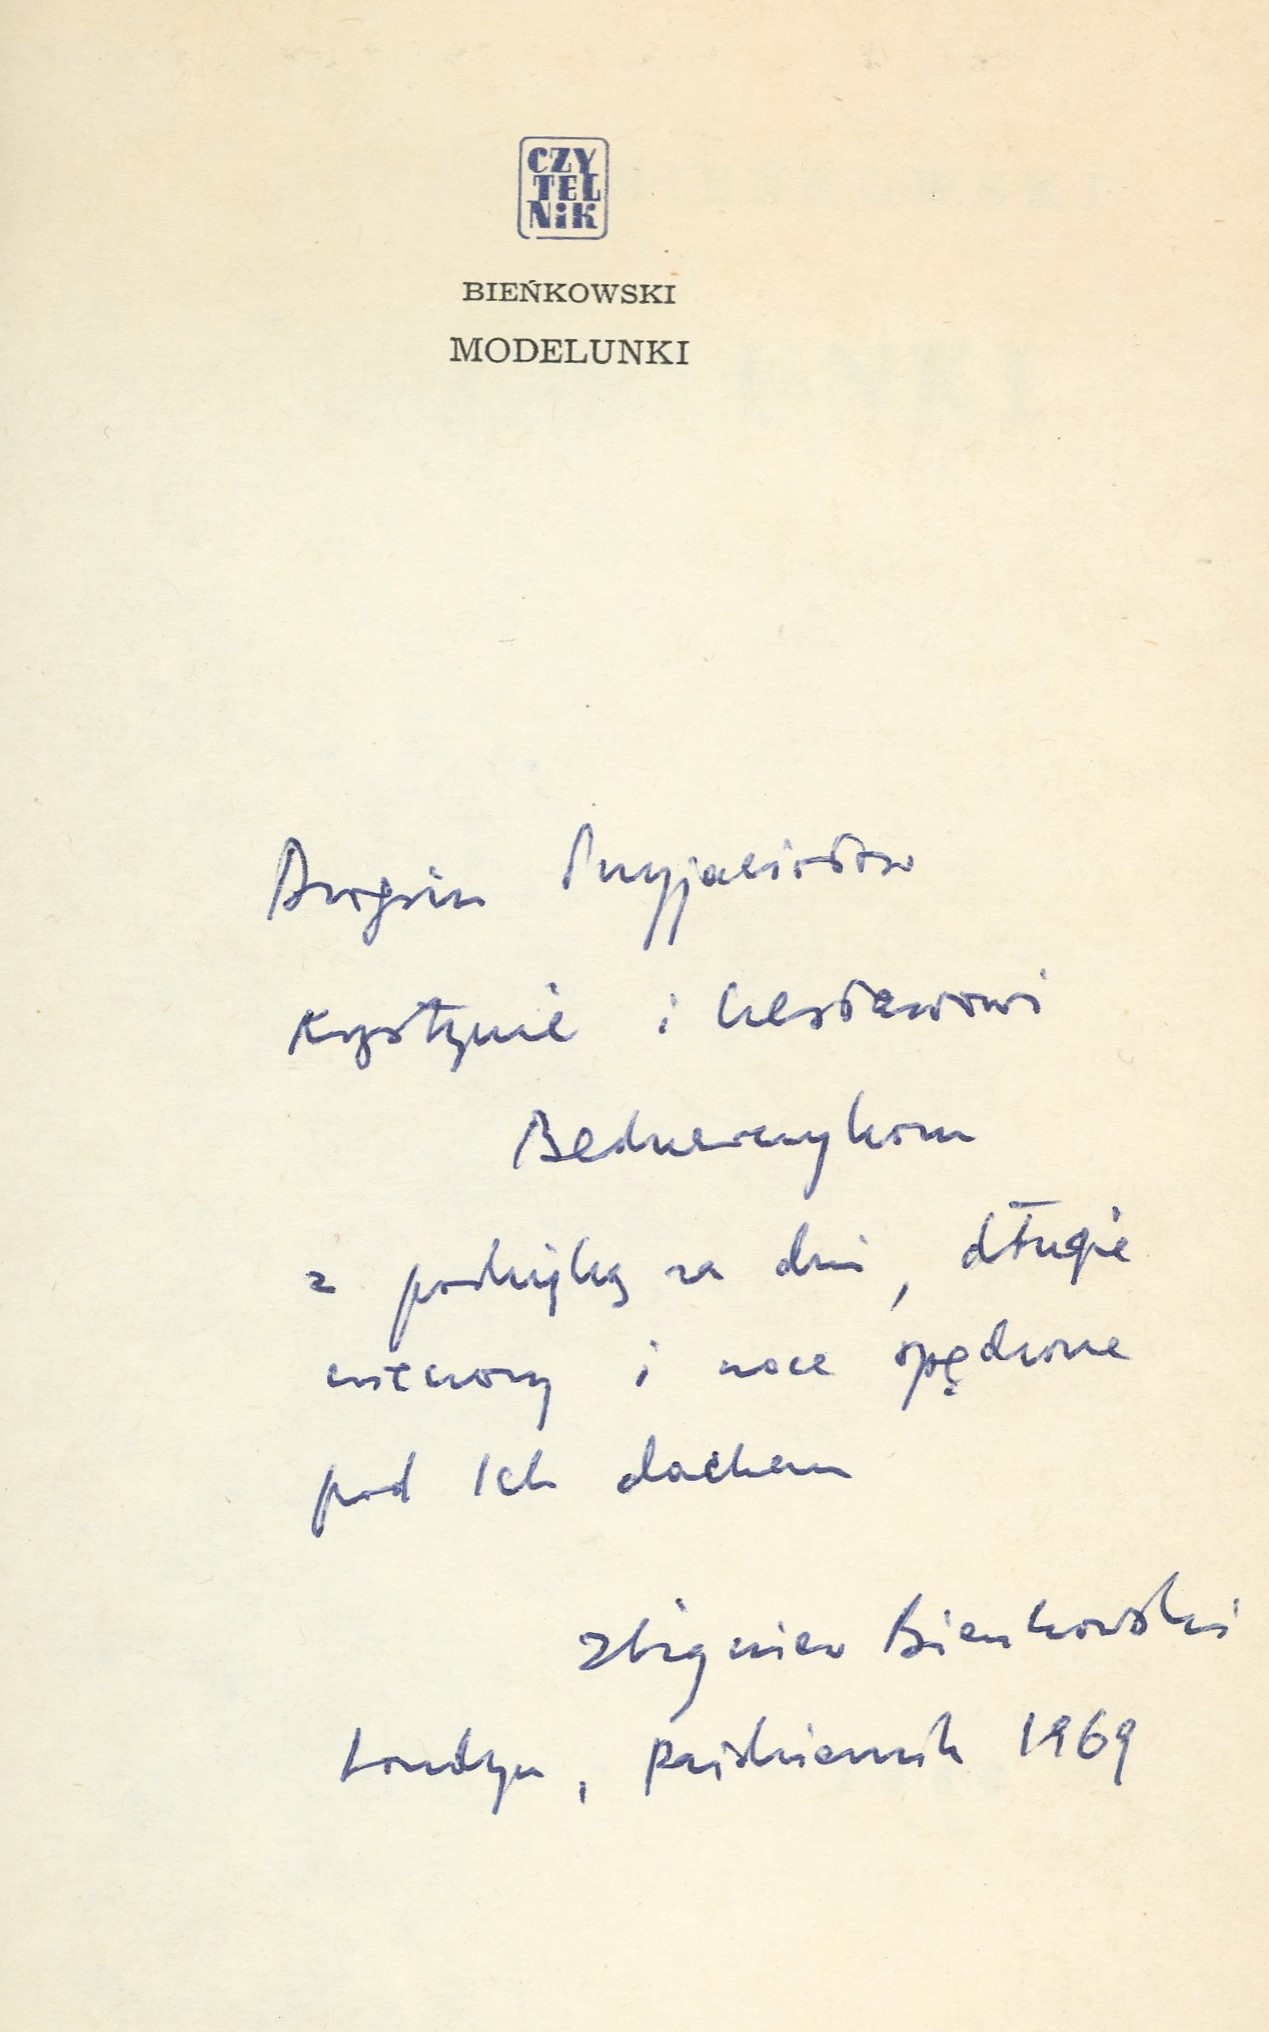 CZY
TEL
NiK
BIEŃKOWSKI
MODELUNKI
Drogim Przyjaciołom
Krystynie i Czesławowi
Bednarczykom
z podzięką za dni, długie
wieczory i noce spędzone
pod Ich dachem
Zbigniew Bieńkowski
Londyn, październik 1969